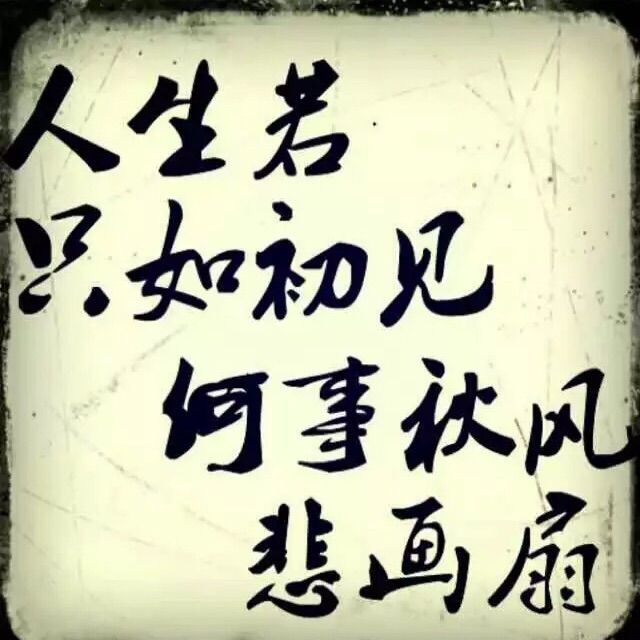 人生若
只如初见
何事秋风
悲画扇